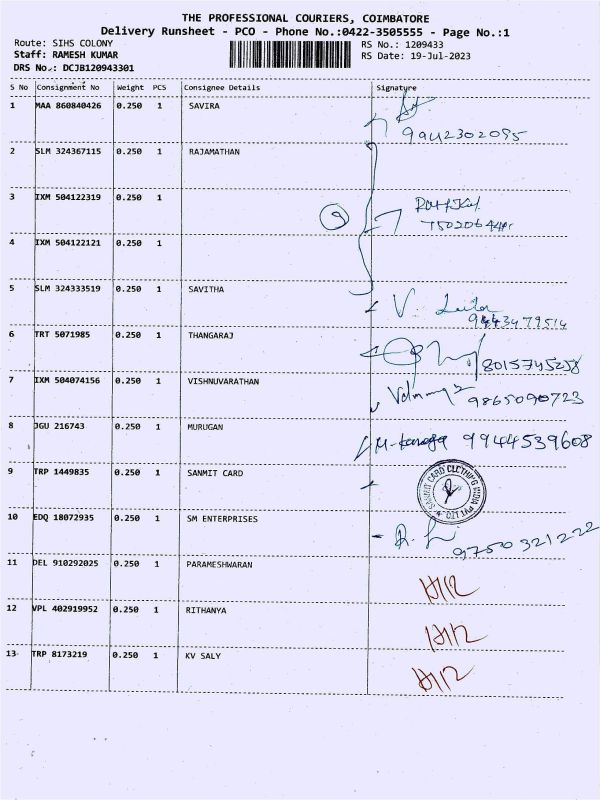 THE PROFESSIONAL COURIERS, COIMBATORE
Delivery Runsheet - PCO - Phone No.:0422-3505555 - Page No.:1
Route: SIHS COLONY
RS No.: 1209433
Staff: RAMESH KUMAR
RS Date: 19-Jul-2023
DRS No.: DCJB120943301
S No Consignment No Weight PCS Consignee Details Signature
1 MAA 860840426 0.250 1 SAVIRA
9442302095
2 SLM 324367115 0.250 1 RAJAMATHAN
3 IXM 504122319 0.250 1
9
4 IXM 504122121 0.250 1
5 SLM 324333519 0.250 1 SAVITHA
V.
9443479514
6 TRT 5071985 0.250 1 THANGARAJ
8015745258
7 IXM 504074156 0.250 1 VISHNUVARATHAN
9865090723
8 JGU 216743 0.250 1 MURUGAN
9944539608
9 TRP 1449835 0.250 1 SANMIT CARD
SANMIT CARD CLOTHING INDIA PVT LTD
10 EDQ 18072935 0.250 1 SM ENTERPRISES
9750321222
11 DEL 910292025 0.250 1 PARAMESHWARAN
12 VPL 402919952 0.250 1 RITHANYA
13 TRP 8173219 0.250 1 KV SALY